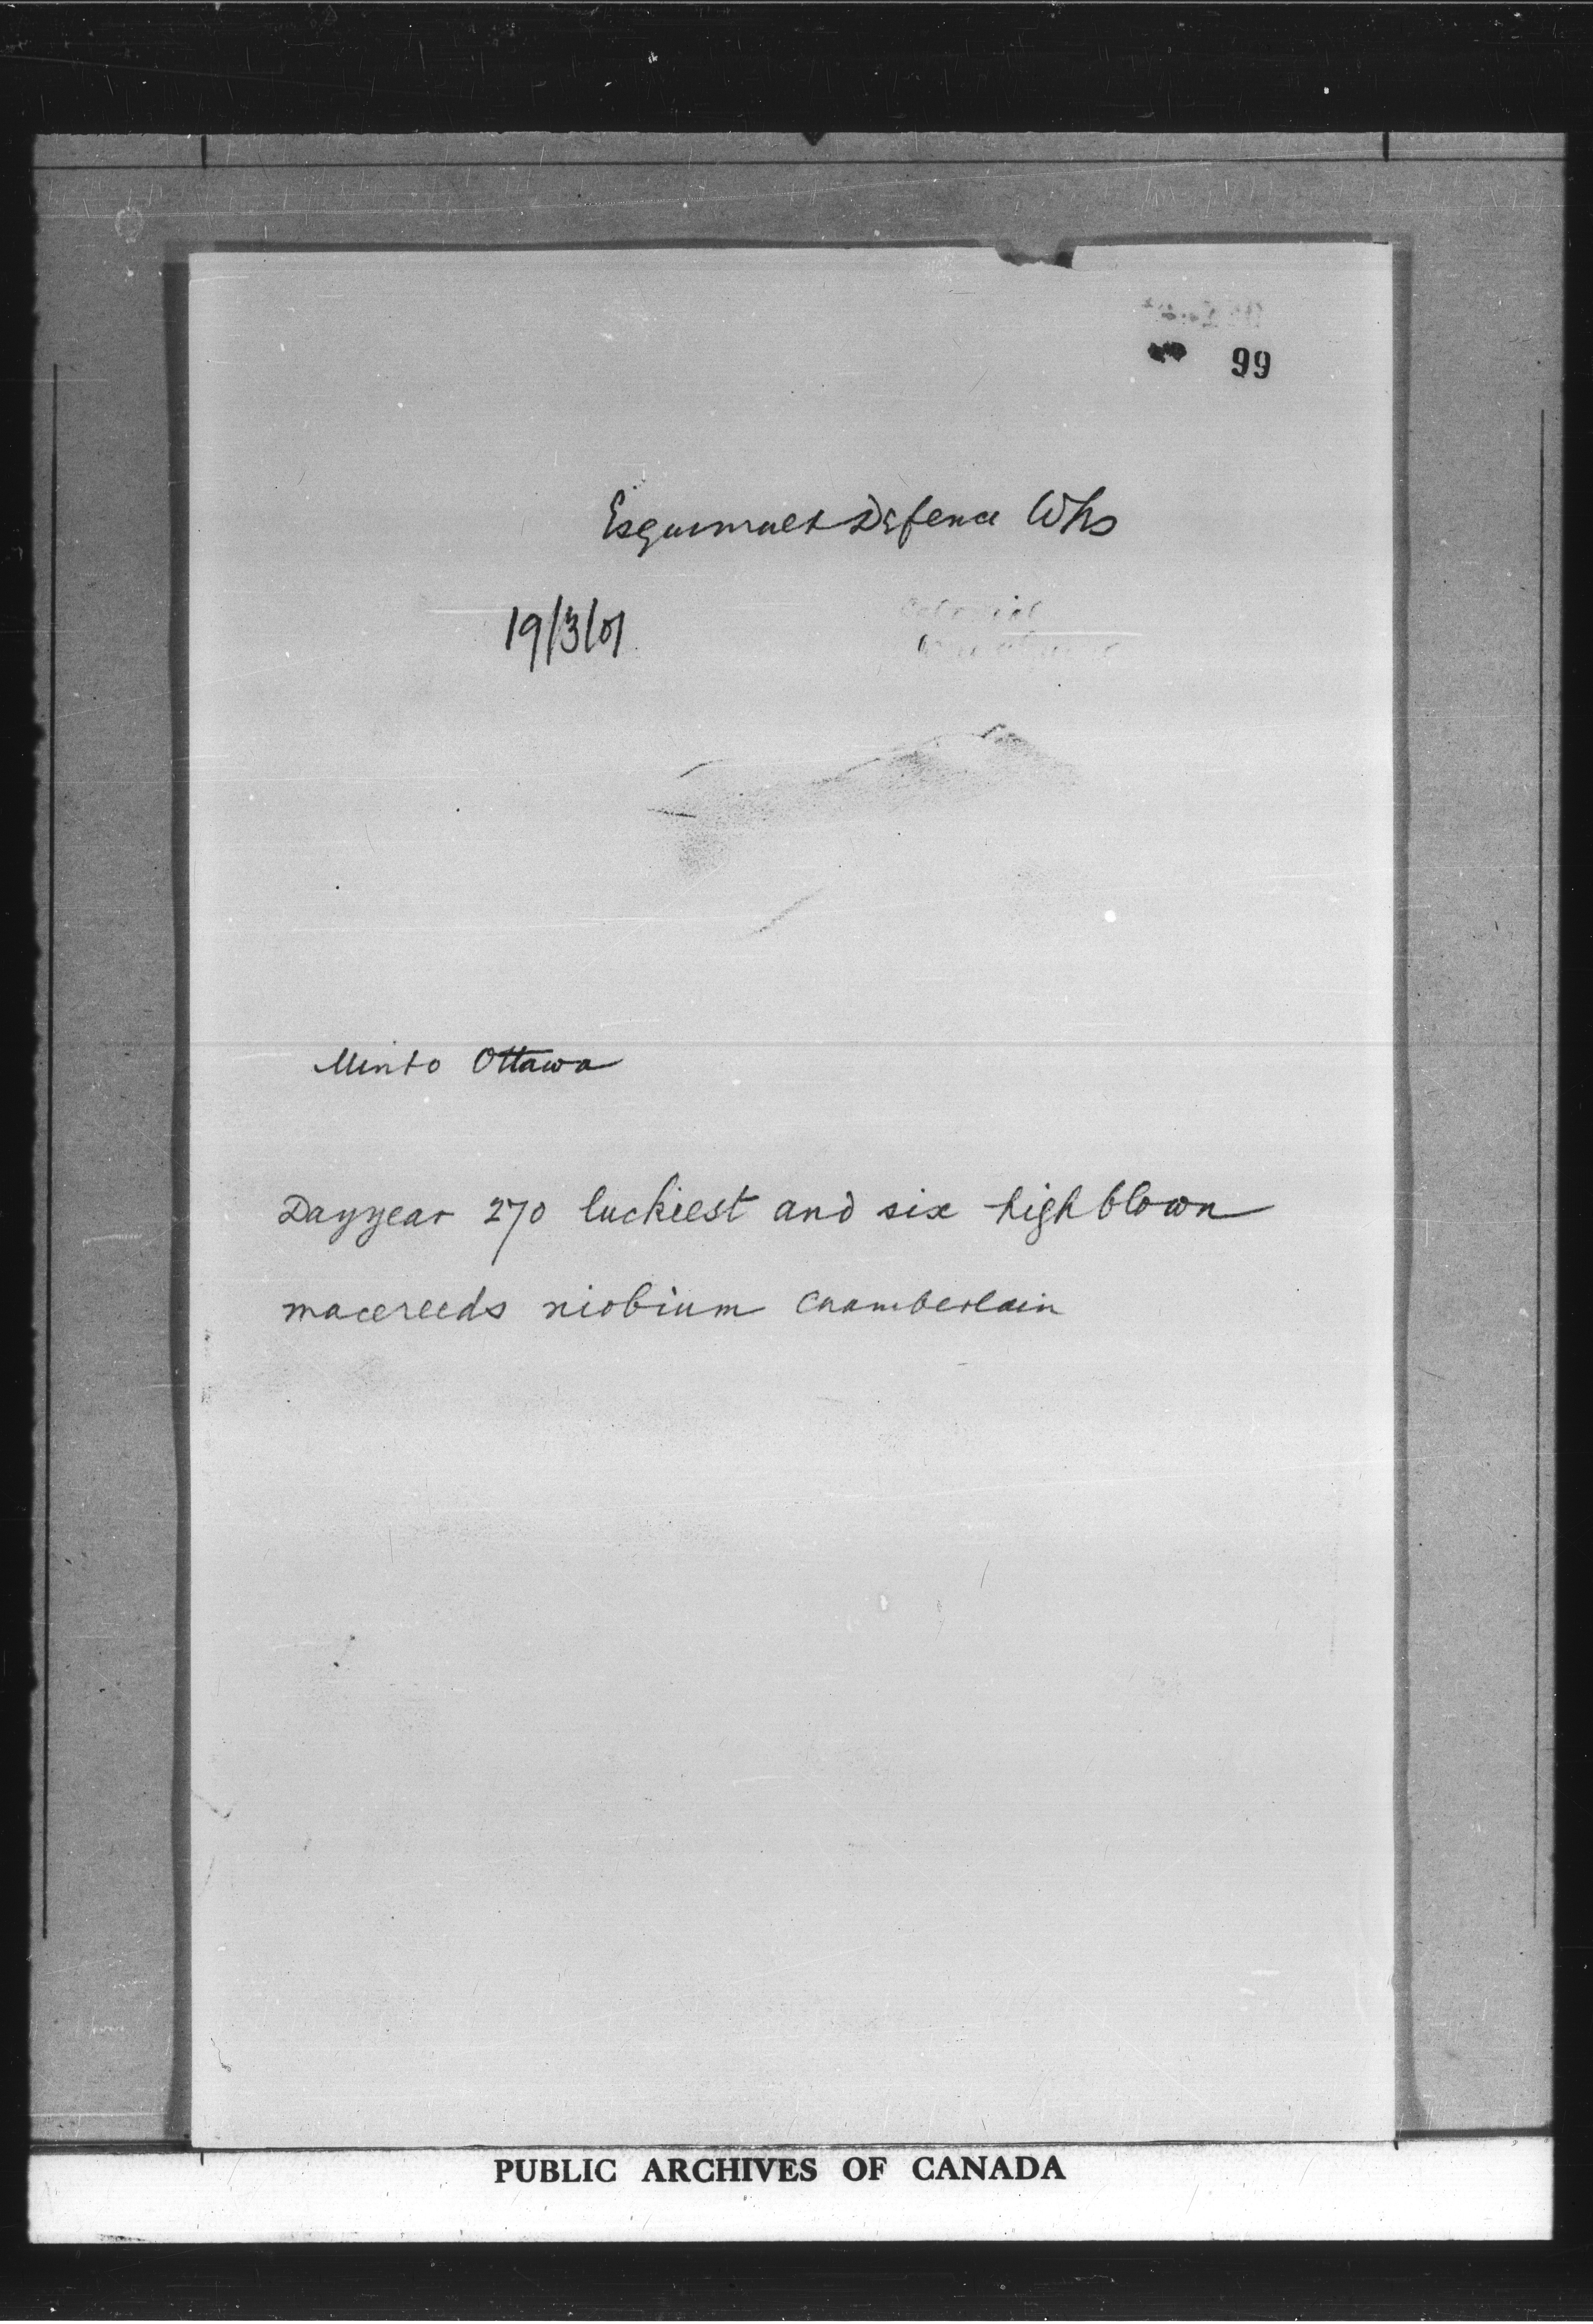 99
Esquimalt Defence Wks
19/3/01
Minto Ottawa
Dayyear 270 luckiest and six highblown
macereeds niobium Chamberlain
PUBLIC ARCHIVES OF CANADA